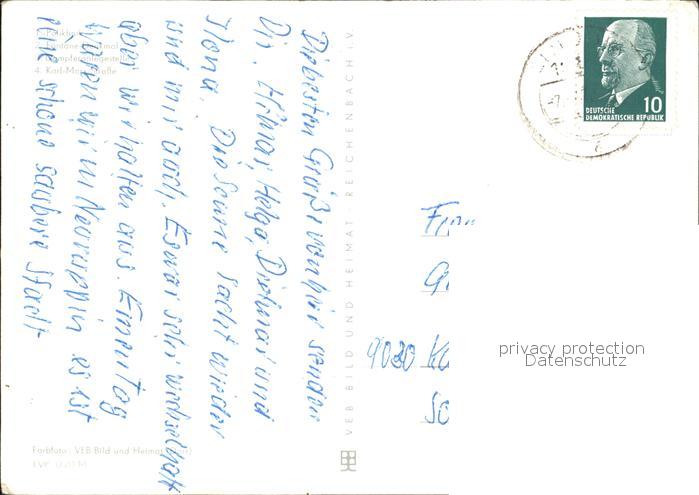 1. Parkhotel
2. Fontane-Denkmal
3. Dampferanlegestelle
4. Karl-Marx-Straße
Die besten Grüße von hier senden
Dir, Hilmar, Helga, Dietmar und
Ilona. Die Sonne lacht wieder
und wir auch. Es war sehr wechselhaft
aber wir halten aus. Einen Tag
waren wir in Neuruppin es ist
eine schöne saubere Stadt.
Farbfoto: VEB Bild und Heimat
EVP
VEB BILD UND HEIMAT REICHENBACH i. V.
DEUTSCHE
DEMOKRATISCHE REPUBLIK
10
9020
privacy protection
Datenschutz